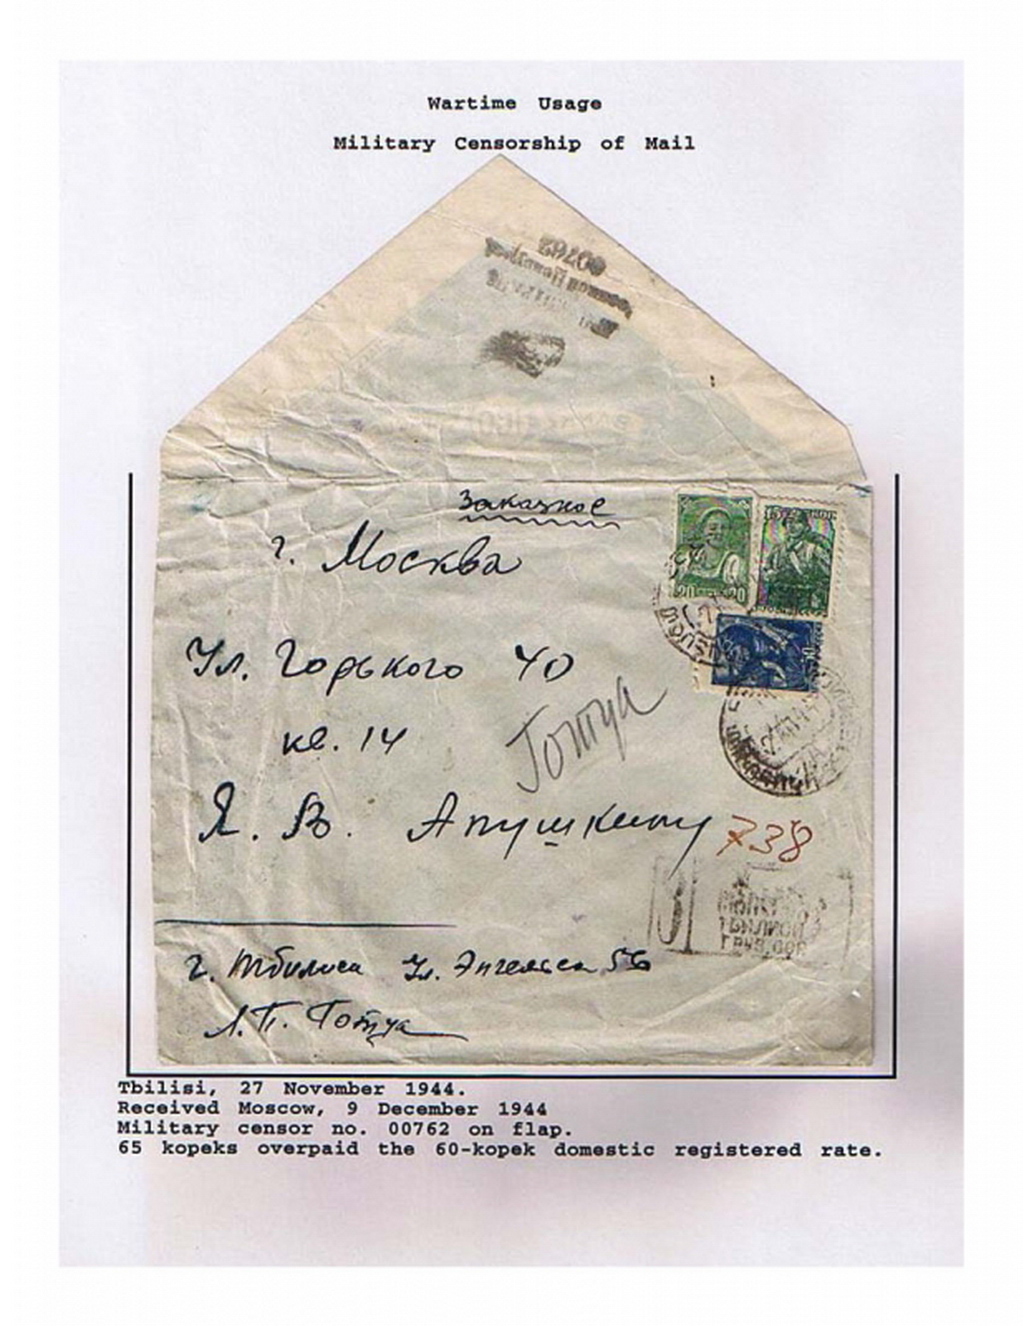 Wartime Usage
Military Censorship of Mail
00762
Заказное
г. Москва
Ул. Горького 40
кв. 14
Я. В. Апушкину
Готуа
738
20 20
15 КОП
З
ТБИЛИСИ
ГРУЗ. ССР
г. Тбилиси Ул. Энгельса 56
Л. П. Готуа
Tbilisi, 27 November 1944.
Received Moscow, 9 December 1944
Military censor no. 00762 on flap.
65 kopeks overpaid the 60-kopek domestic registered rate.